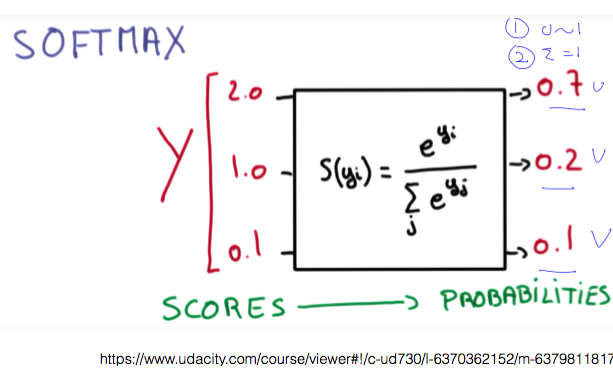 SOFTMAX
① 0~1
② Σ=1
Y
2.0
1.0
0.1
S(yi) = e^yi / Σj e^yj
→0.7 v
→0.2 v
→0.1 v
SCORES → PROBABILITIES
https://www.udacity.com/course/viewer#!/c-ud730/l-6370362152/m-6379811817